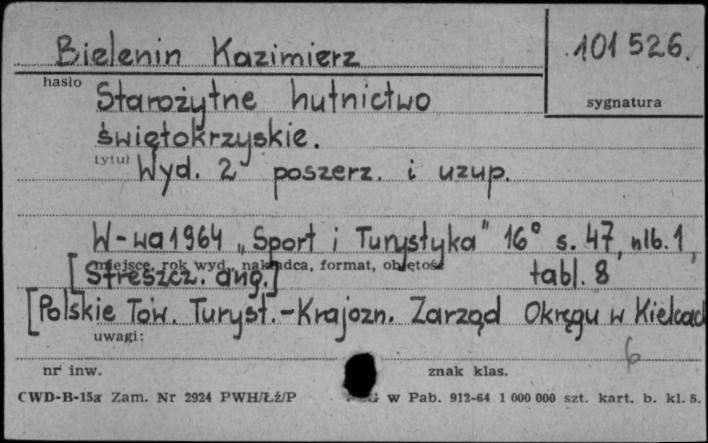 Bielenin Kazimierz
101 526.
hasło
sygnatura
Starożytne hutnictwo
świętokrzyskie.
tytuł
Wyd. 2 poszerz. i uzup.
W-wa 1964 „Sport i Turystyka" 16° s. 47, nlb. 1,
miejsce, rok wyd., nakładca, format, objętość
[Streszcz. ang.] tabl. 8
[Polskie Tow. Turyst.-Krajozn. Zarząd Okręgu w Kielcach
uwagi:
6
nr inw.
znak klas.
CWD-B-15a Zam. Nr 2924 PWH/Łź/P w Pab. 912-64 1 000 000 szt. kart. b. kl. 5.